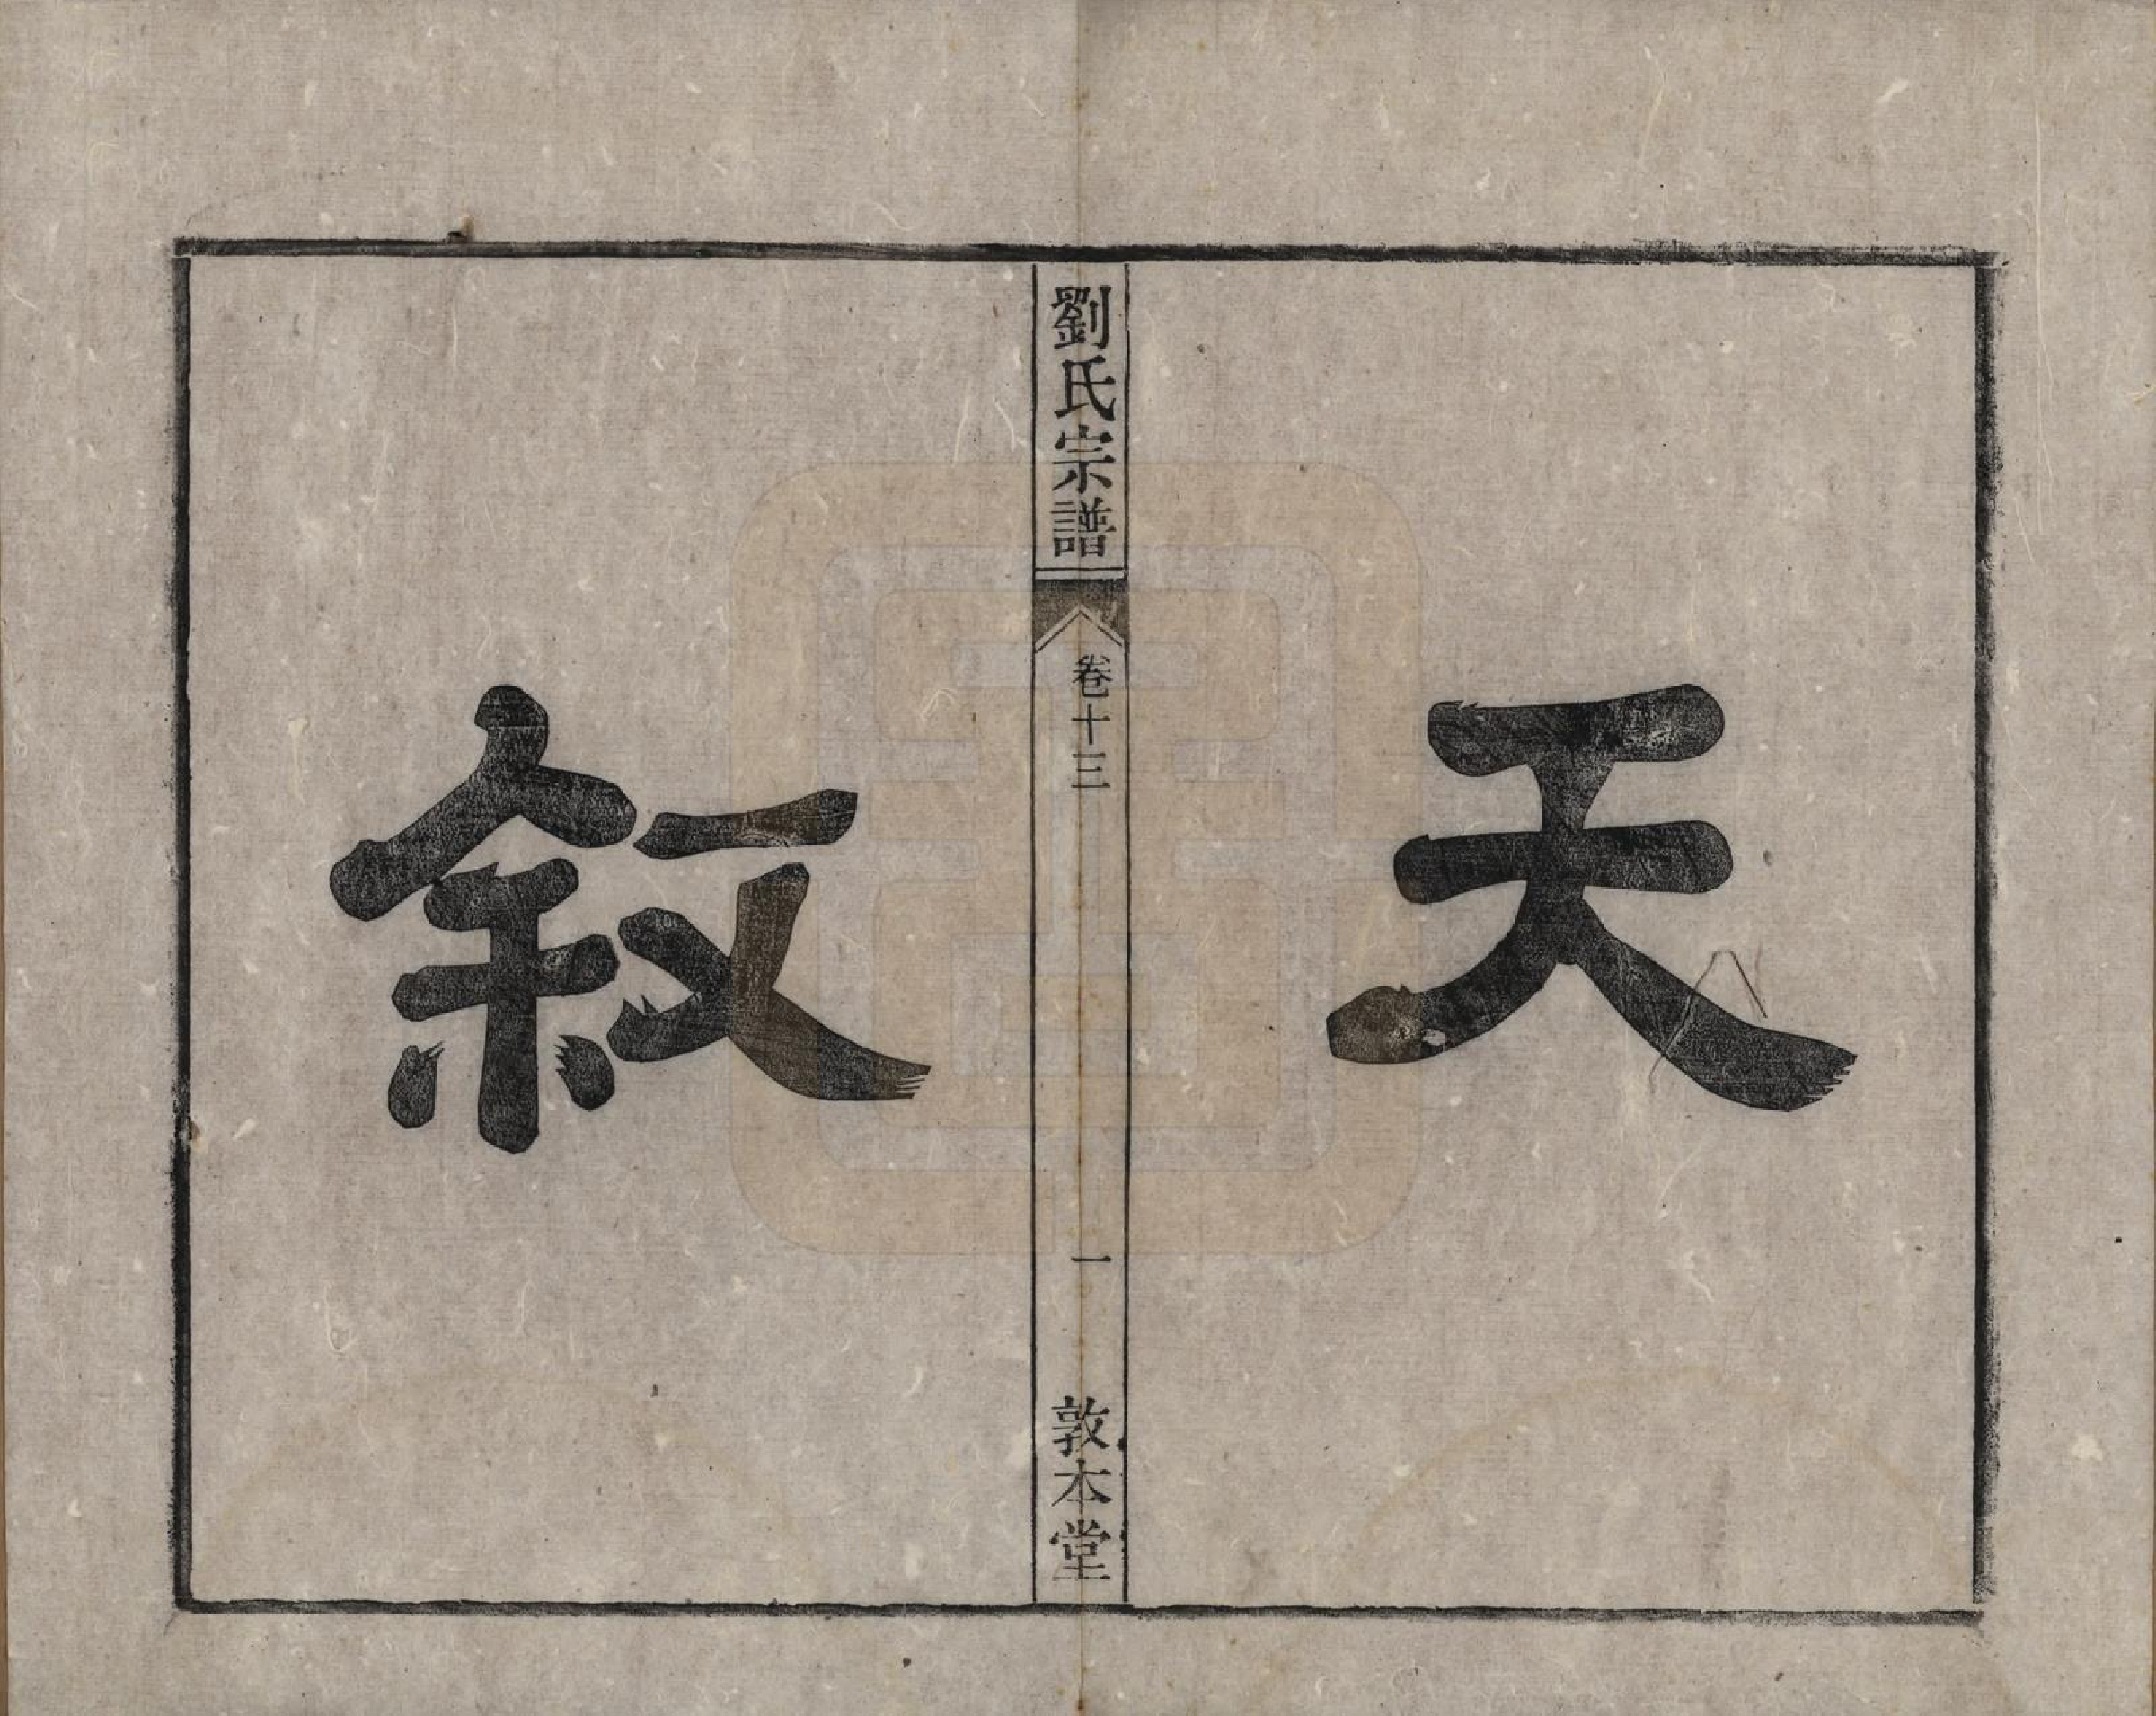 天
劉氏宗譜
卷十三
一
敦本堂
敘